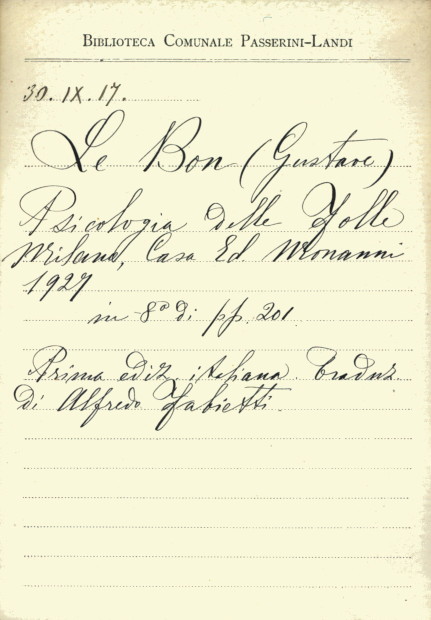 BIBLIOTECA COMUNALE PASSERINI-LANDI
30. IX. 17.
Le Bon (Gustave)
Psicologia delle Folle
Milano, Casa Ed. Monanni
1927
in 8º di pp. 201.
Prima ediz. italiana. Traduz.
di Alfredo Fabietti.